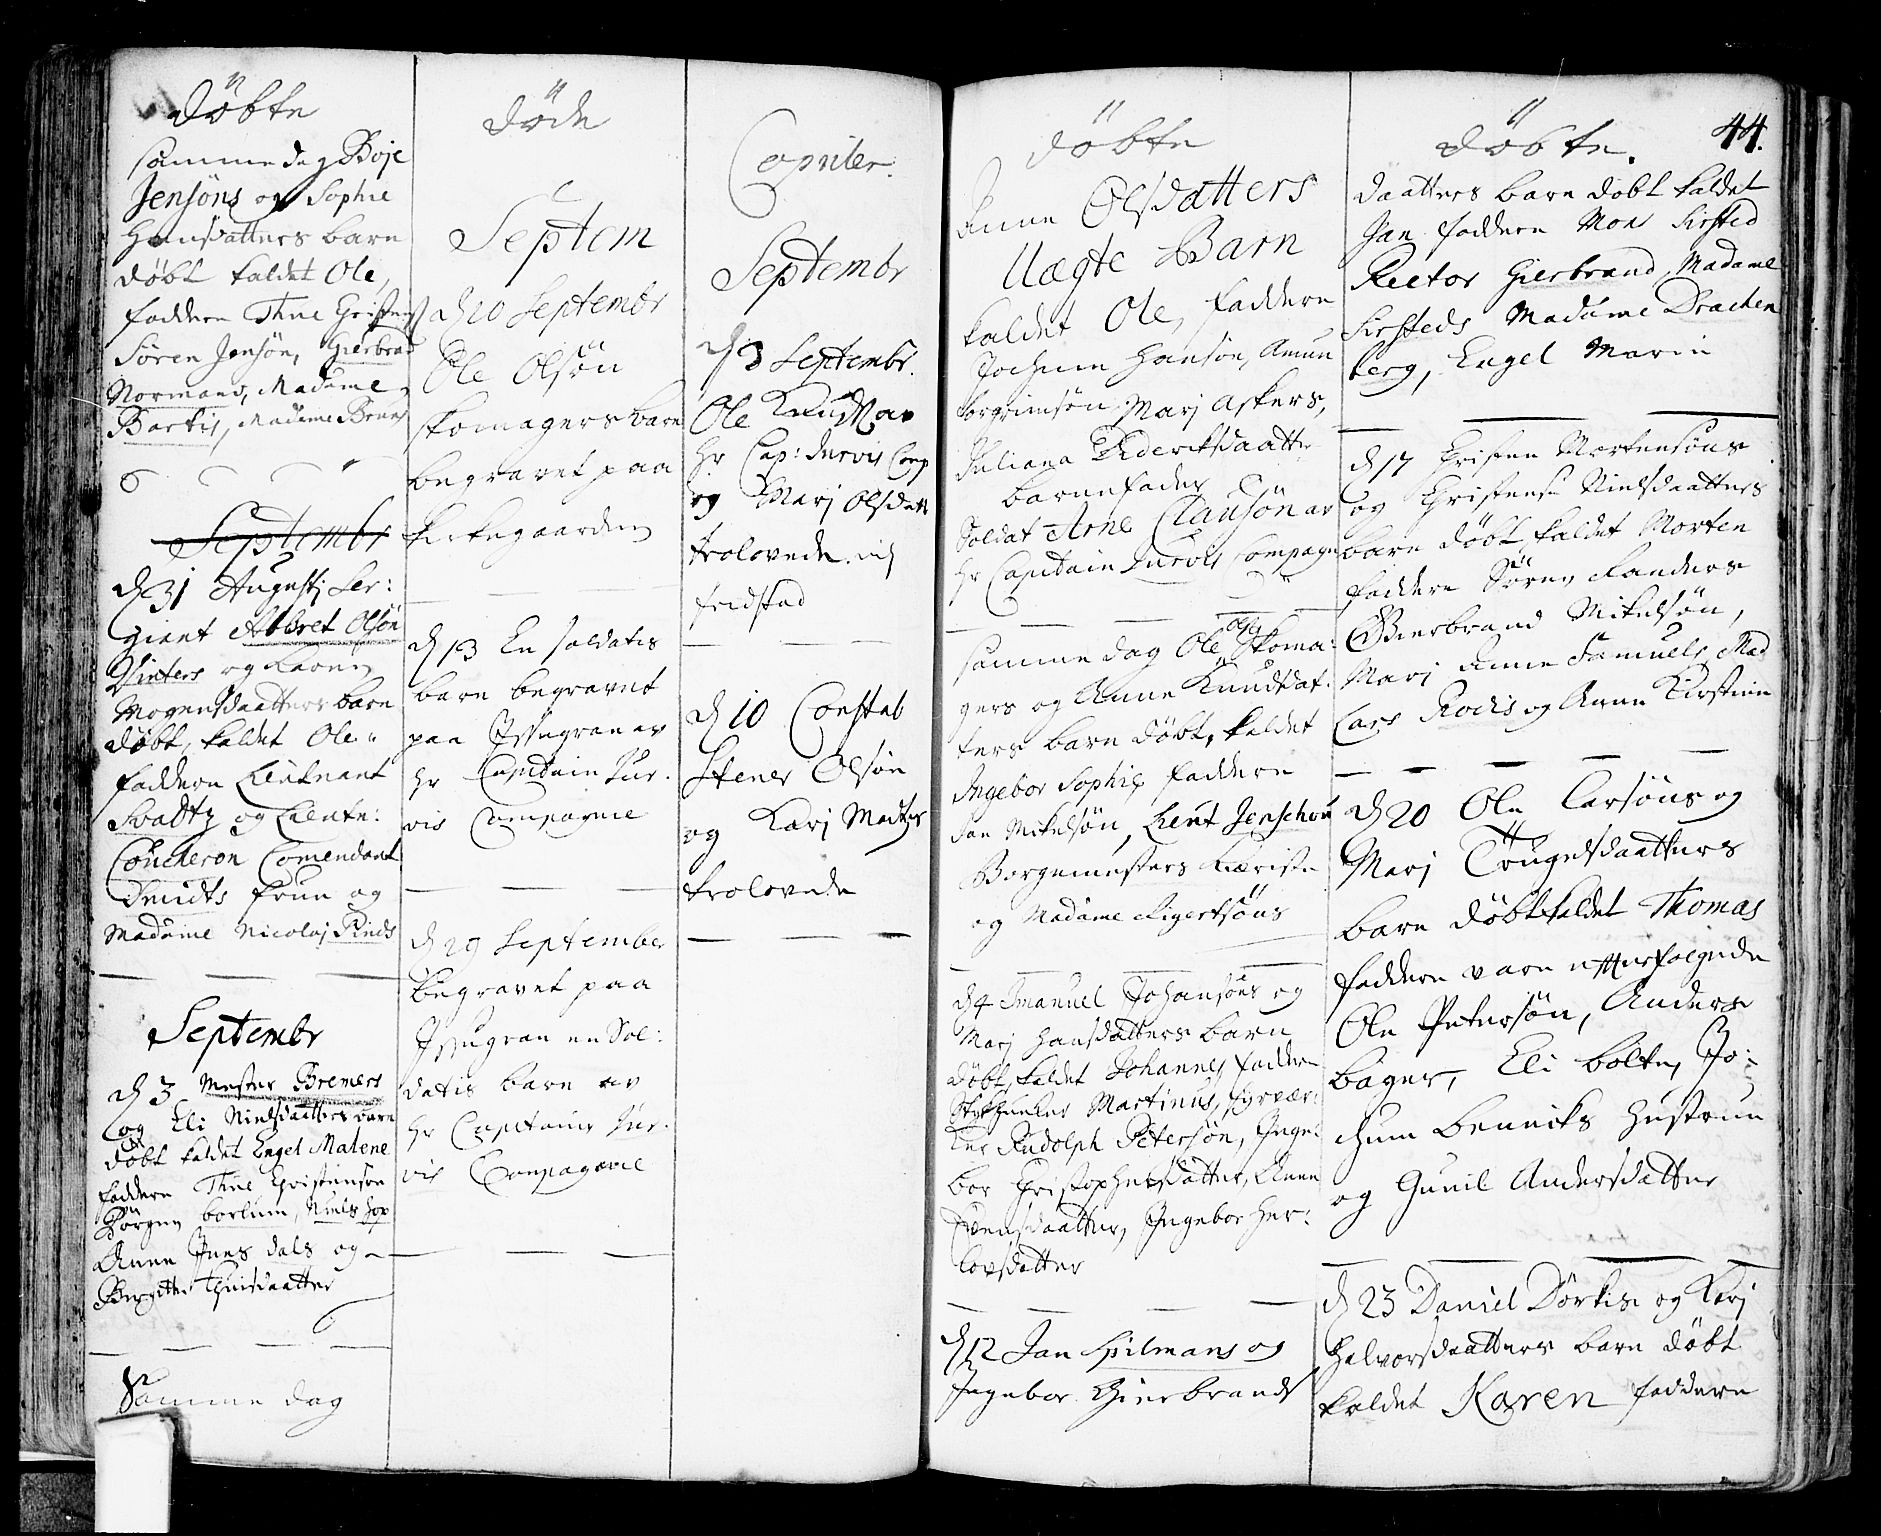 döbte
samme dag Boje
Jensöns og Sophie
Hansdatters barn
döbt kaldet Ole,
faddere Thue Christens
Sören Jensön, Gierbrad
Normand, Madame
Bartis, Madame
Septembr
d 31 Augustj Ser:
giant Albret Olsön
Vinters og Karen
Mogensdaatters barn
döbt, kaldet Ole
faddere Lieutnant
Svadtz og Lieutn:
Coucheron Comendant
Smidts frue og
Madame Nicolaj Pinds
Septembr
d 3 Mester Bremers
og Eli Nielsdaatters barn
döbt kaldet Engel Malene
faddere Thue Christensön
Jörgen borlum, Niels Jop
Anne Jves dals og
Birgithe Thuisdaatter
Samme dag
döde
Septem
d 20 Septembr
Ole Olsön
skomagers barn
begravet paa
kirkegaarden
d 13 En soldatis
barn begravet
paa Issugran av
hr Capitain Jur:
vis Compagnie
d 29 September
begravet paa
Issugran en Sol:
datis barn av
hr Capitain Jur:
vis Compagnie
Copuler.
Septembr
d 3 Septembr.
Ole Knudts av
hr Cap: Jurvis Comp
og Marj Olsdatt
trolovede inj
fridstad
d 10 Constab
Stener Olsön
og Karj Madtzs
trolovede
döbte
Anne Olsdatters
Uægte Barn
kaldet Ole, faddere
Jochum Hansön, Amun
torgrimsön Marj Askers,
Juliana Dideriksdaatter
barnefader
Soldat Arne Clausön av
hr Capitain Jurvis Compagn
samme dag Ole Olss Skoma:
gers og Anne Knudsdat:
ters barn döbt, kaldet
Ingebor Sophie faddere
Jan Mikelsön, Lieut Jenschou
Borgemesters Kæriste
og Madame Sigertsöns
d 4 Imanuel Johansöns og
Marj Hansdatters barn
döbt, kaldet Johannes faddere
Stykjunker Martinus, fyrvær:
ker Rudolph Petersön, Inge
bor Christophersdatter, Anne
Svensdaatter, Ingebor Her:
lovsdatter
d 12 Jan Spilmans og
Ingebor Gierbrands
döbte. 44.
daatters barn döbt kaldet
Jan faddere Mons Kirsted
Rector Gierbrand, Madame
Kirsteds Madame Drachen
berg, Engel Marie
d 17 Christen Mortensöns
og Christense Nielsdaatters
barn döbt kaldet Morten
faddere Sören Randers
Gierbrand Mikelsön,
Marj Anne Samuels, Mad
Lars Rodis og Anne Kirstine
d 20 Ole Larsöns og
Marj Trugelsdaatters
barn döbt kaldet Thomas
faddere vare effterfølgende
Ole Petersön, Anders
bager, Eli bolte, Jo:
chum benniks hustrue
og Gunil Andersdatter
d 23 Daniel Dörkis og Karj
Halvorsdaatters barn döbt
kaldet Karen faddere